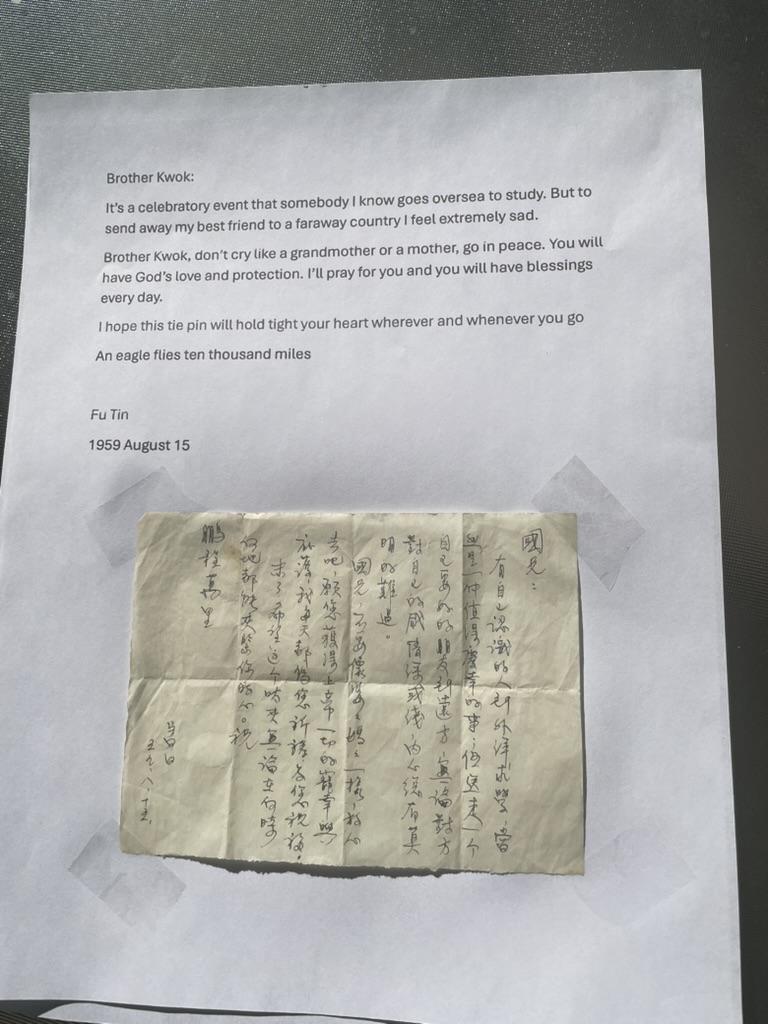 Brother Kwok:
It's a celebratory event that somebody I know goes oversea to study. But to
send away my best friend to a faraway country I feel extremely sad.
Brother Kwok, don't cry like a grandmother or a mother, go in peace. You will
have God's love and protection. I'll pray for you and you will have blessings
every day.
I hope this tie pin will hold tight your heart wherever and whenever you go
An eagle flies ten thousand miles
Fu Tin
1959 August 15
國兄：
有自己認識的人到外洋求學，當
是一件值得慶幸的事；但送走一个
自己要好的朋友到遠方，無論對方
對自己的感情深或淺，內心總有莫
明的難過。
國兄，不要像婆々媽々一樣，放心
去吧，願您獲得上帝一切的寵幸與
庇護，我每天都為您祈禱，為您祝福。
末了希望這个夾無論在何時
何地都能夾緊你的心。祝
鵬程萬里
五九、八、十五.